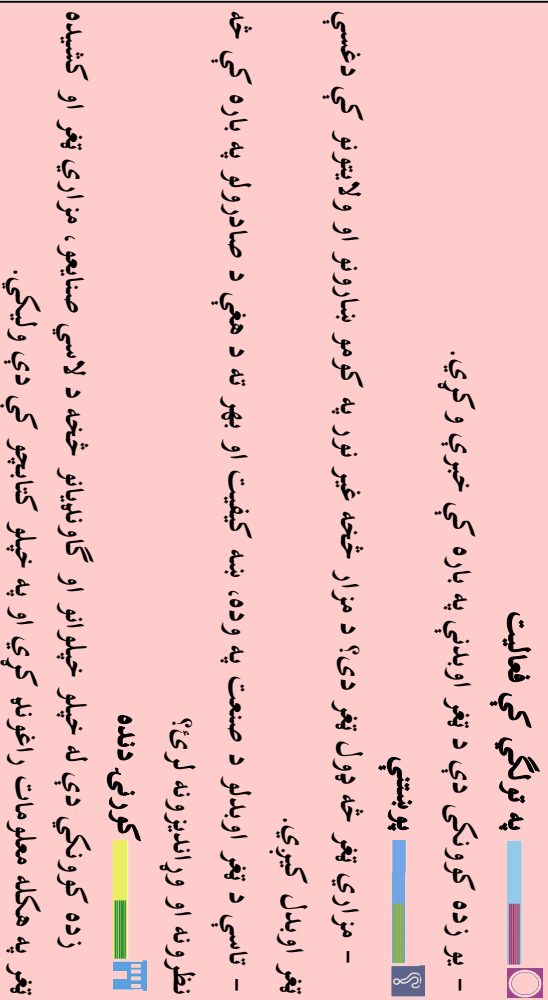 په ټولګي کې فعالیت
- یو زده کوونکي دې د ټغر اوبدنې په باره کې خبرې وکړي.
پوښتنې
- مزاري ټغر څه ډول ټغر دی؟ د مزار څخه غیر نور په کومو ښارونو او ولایتونو کې دغسې
ټغر اوبدل کېږي.
- تاسې د ټغر اوبدلو د صنعت په وده، ښه کیفیت او بهر ته د هغې د صادرولو په باره کې څه
نظرونه او وړاندیزونه لرئ؟
کورنۍ دنده
زده کوونکي دې له خپلو خپلوانو او ګاونډیانو څخه د لاسي صنایعو، مزاري ټغر او کشیده
ټغر په هکله معلومات راغونډ کړي او په خپلو کتابچو کې دې ولیکي.